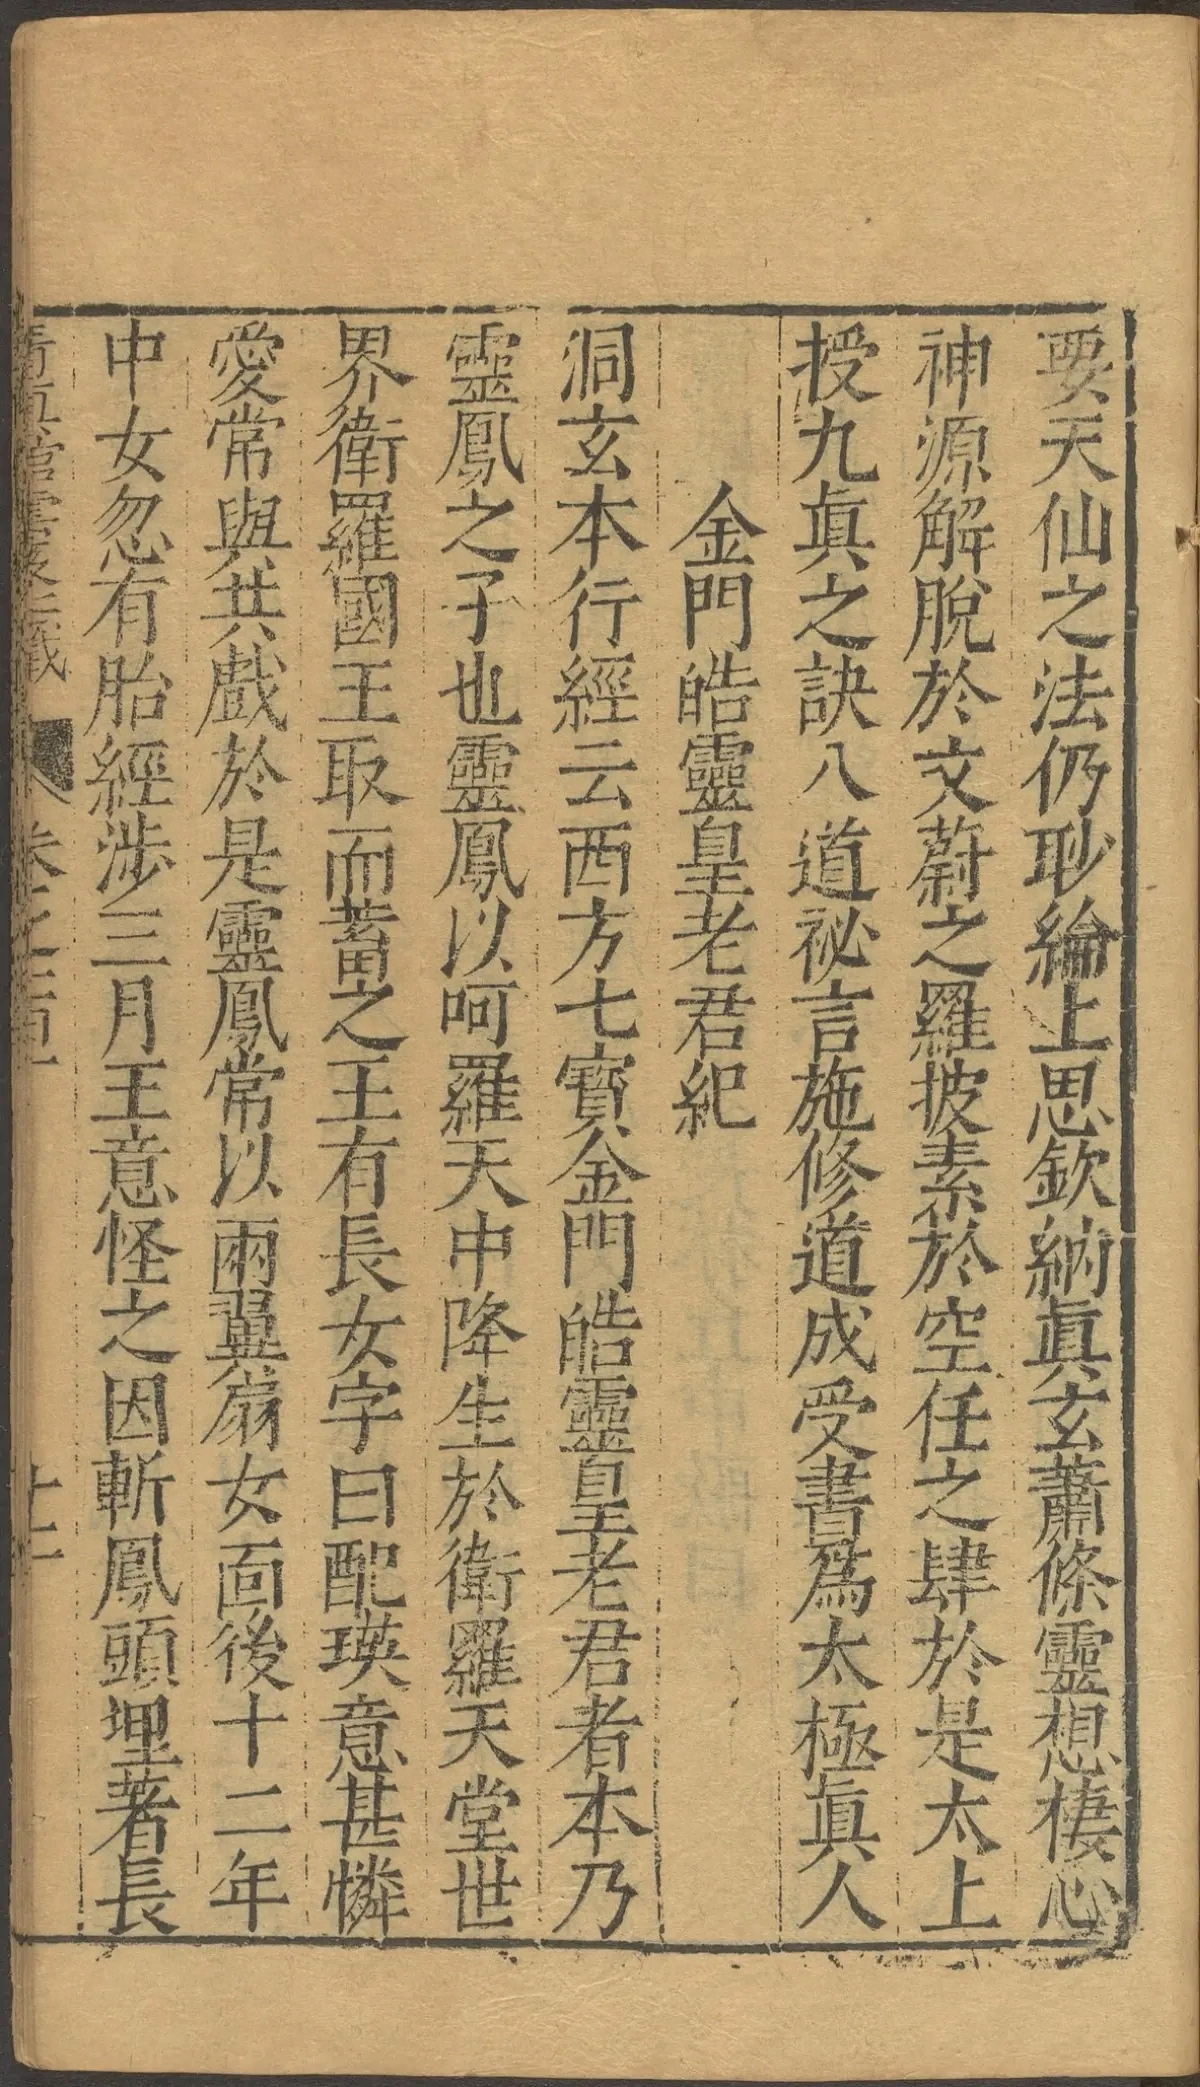 要天仙之法仍眇綸上思欽納眞玄蕭條靈想棲心
神源解脫於文蔚之羅披素於空任之肆於是太上
授九眞之訣八道祕言施修道成受書爲太極眞人
金門皓靈皇老君紀
洞玄本行經云西方七寶金門皓靈皇老君者本乃
靈鳳之子也靈鳳以呵羅天中降生於衛羅天堂世
界衛羅國王取而蓄之王有長女字曰配瑛意甚憐
愛常與共戲於是靈鳳常以兩翼扇女面後十二年
中女忽有胎經涉三月王意怪之因斬鳳頭埋著長
清眞館雲笈七籤 卷之一百一 十二